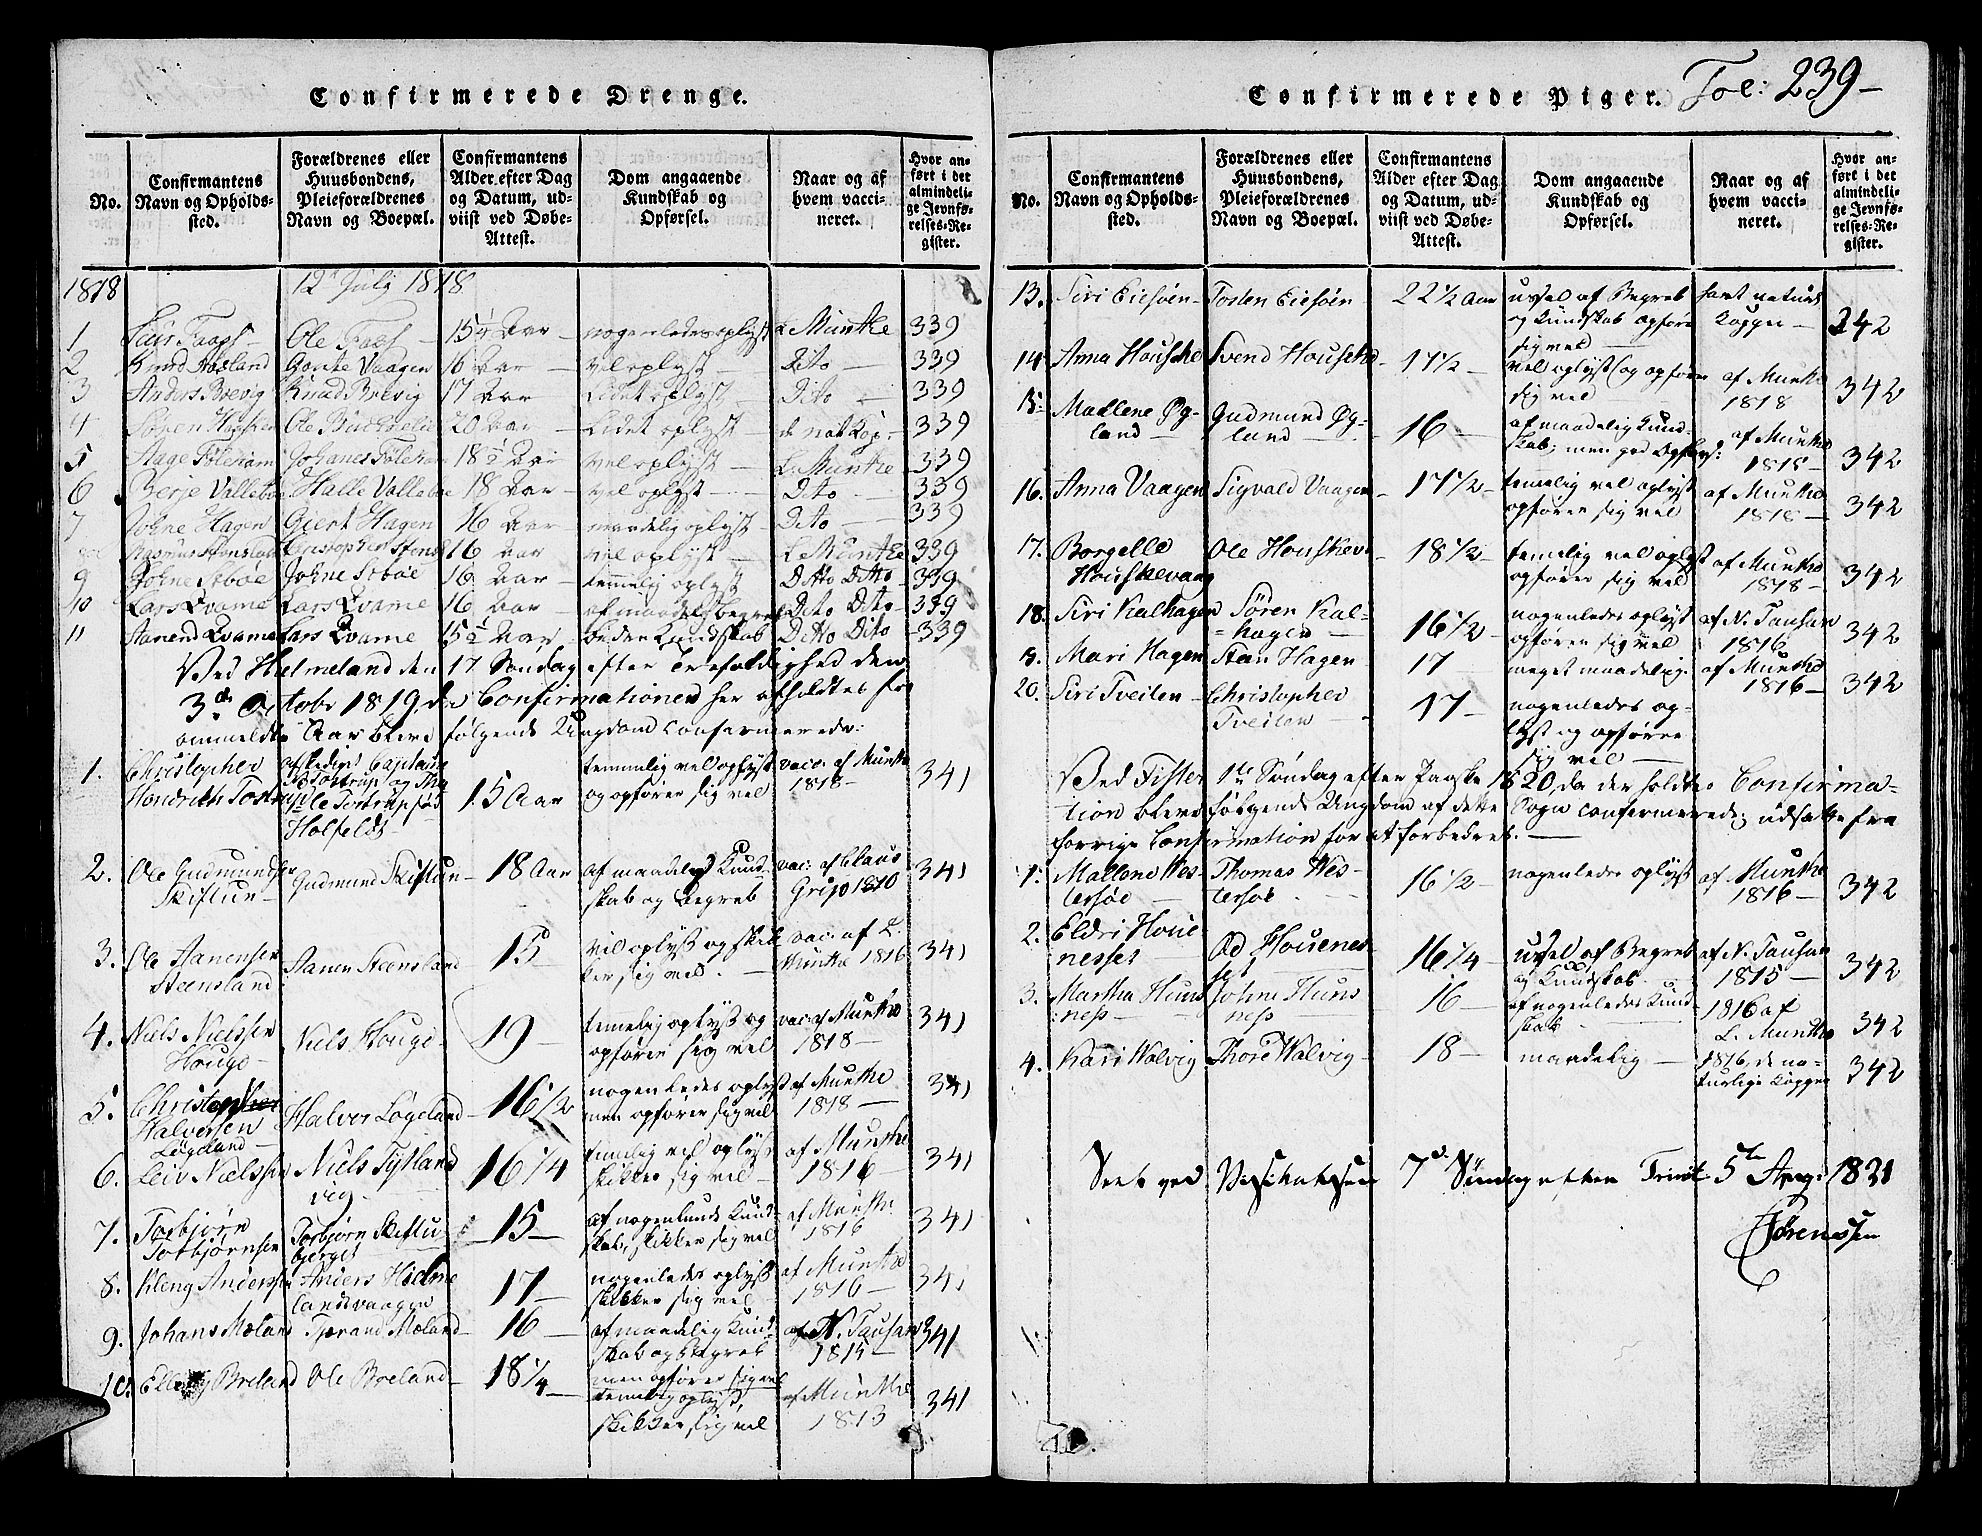 Confirmerede Drenge.
No.
Confirmantens Navn og Opholds-sted.
Forældrenes eller Huusbondens, Pleieforældrenes Navn og Boepæl.
Confirmantens Alder efter Dag og Datum, ud-viist ved Døbe-Attest.
Dom angaaende Kundskab og Opførsel.
Naar og af hvem vacci-neret.
Hvor an-ført i det almindeli-ge Jevnfø-relses-Re-gister.
1818 12 July 1818
1 Ole 15½ Aar nogenledes oplyst L Munthe 339
2 Knud Gonte Vaagen 16 Aar vel oplyst Dito 339
3 Anders Brevig Knud Brevig 17 Aar Lidet oplyst Dito 339
4 Ole 20 Aar Lidet oplyst de nat Kop: 339
5 Aage Johanes 18½ vel oplyst L. Munthe 339
6 Berje Halle 18 Aar vel oplyst Dito 339
7 Johne Hagen Giert Hagen 16 Aar maadelig oplyst Dito 339
Rasmus 16 Aar vel oplyst L Munthe 339
9 Johne Johne 16 Aar temmelig oplyst Ditto Ditto 339
10 Lars Qvame Lars Qvame 16 Aar af maadelig begreb Dito Dito 339
11 Aanend Qvame Lars Qvame 15½ Aar Kundskab Ditto Dito 339
Ved Hielmeland den 17 Søndag efter Trefoldighed den
3d October 1819, da Confirmationen her afholdtes for
ommeldte Aar bleve følgende Ungdom confermerede:
1. Christopher Hendrich Tostrup afskediget Capitain Tostrup og Holfeldt 15 Aar temmelig vel oplyst og opfører sig vel vacc: af Munthe 1818 341
2. Ole Gudmundsen Skiftun Gudmund Skiftun 18 Aar af maadelig Kundskab og Begreb vac: af Claus Grip 1810 341
3. Ole Aanensen Steensland Aanen Steensland 15 vel oplyst og skikker sig vel. vac: af L. Munthe 1816 341
4. Niels Nielssen Houge Niels Houge 19 temelig oplyst og opfører sig vel vac: af Munthe 1818 341
5. Christopher Halversen Løgeland Halver Løgeland 16½ nogenledes oplyst men opfører sig vel af Munthe 1818 341
6. Leiv Nielssen Niels Tytlandvig 16¼ temelig vel oplyst skikker sig vel af Munthe 1816 341
7. Torbjørn Torbjørnsen Torbjørn Skiftubjerget 15 af nogenlunde Kundskab, skikker sig vel af Munthe 1816 341
8. Kleng Anderssen Anders Hielmelandsvaagen 17 nogenledes oplyst skikker sig vel af Munthe 1816 341
9. Johans Mæland Tjerand Mæland 16 af maadelig Kundskab og begreb men opfører sig vel af N. Tausan 1815 341
10. Elling Breland Ole Breland 18¼ temmelig oplyst, skikker sig vel af Munthe 1813 341
Confirmerede Piger. Fol: 239
No.
Confirmantens Navn og Opholds-sted.
Forældrenes eller Huusbondens, Pleieforældrenes Navn og Boepæl.
Confirmantens Alder efter Dag og Datum, ud-viist ved Døbe-Attest.
Dom angaaende Kundskab og Opførsel.
Naar og af hvem vacci-neret.
Hvor an-ført i det almindeli-ge Jevnfø-relses-Re-gister.
13. Siri Eiesøen Tosten Eiesøen 22½ Aar ussel af Begreb og Kundskab opfører sig vel havt naturl Kopper 342
14 Anna Houske Svend Houske 17½ vel oplyst og opfører sig vel af Munthe 1818 342
15. Madlene Øgland Gudmund Øgland 16 af maadelig Kundskab; men god Opførs: af Munthe 1818 342
16. Anna Vaagen Sigvald Vaagen 17½ temelig vel oplyst opfører sig vel af Munthe 1818 342
17. Borgelle Houskevaag Ole Houskev 18½ temelig vel oplyst opfører sig vel af Munthe 1818 342
18. Siri Kalhagen Søren Kalhagen 16½ nogenledes oplyst opfører sig vel af N. Tausan 1816 342
19. Mari Hagen Sten Hagen 17 meget maadelig. af Munthe 1816 342
20. Siri Tveiten Christopher Tveiten 17 nogenledes oplyst og opfører sig vel
Ved Fister 1te Søndag efter Paaske 1820, da der holdtes Confirma-
tion bleve følgende Ungdom af dette Sogn confermerede; udsatte fra
forrige Confirmation for at forbedres.
1. Mallene Vestersøe Thomas Vestersøe 16½ nogenledes oplyst af Munthe 1816 342
2. Eldri Houenesset Od Houenesset 16¼ ussel af Begreb og Kundskab. af N. Tausan 1815 342
3. Martha Hunsness Johne Hunsness 16 af nogenledes Kundskab 1816 af L. Munthe 342
4. Kari Valvig Thore Valvig 18 maadelig 1816, de naturlige Kopper 342
Seet ved Visitatsen 7d Søndag efter Trinit 5te Aug: 1821
Sørenssen